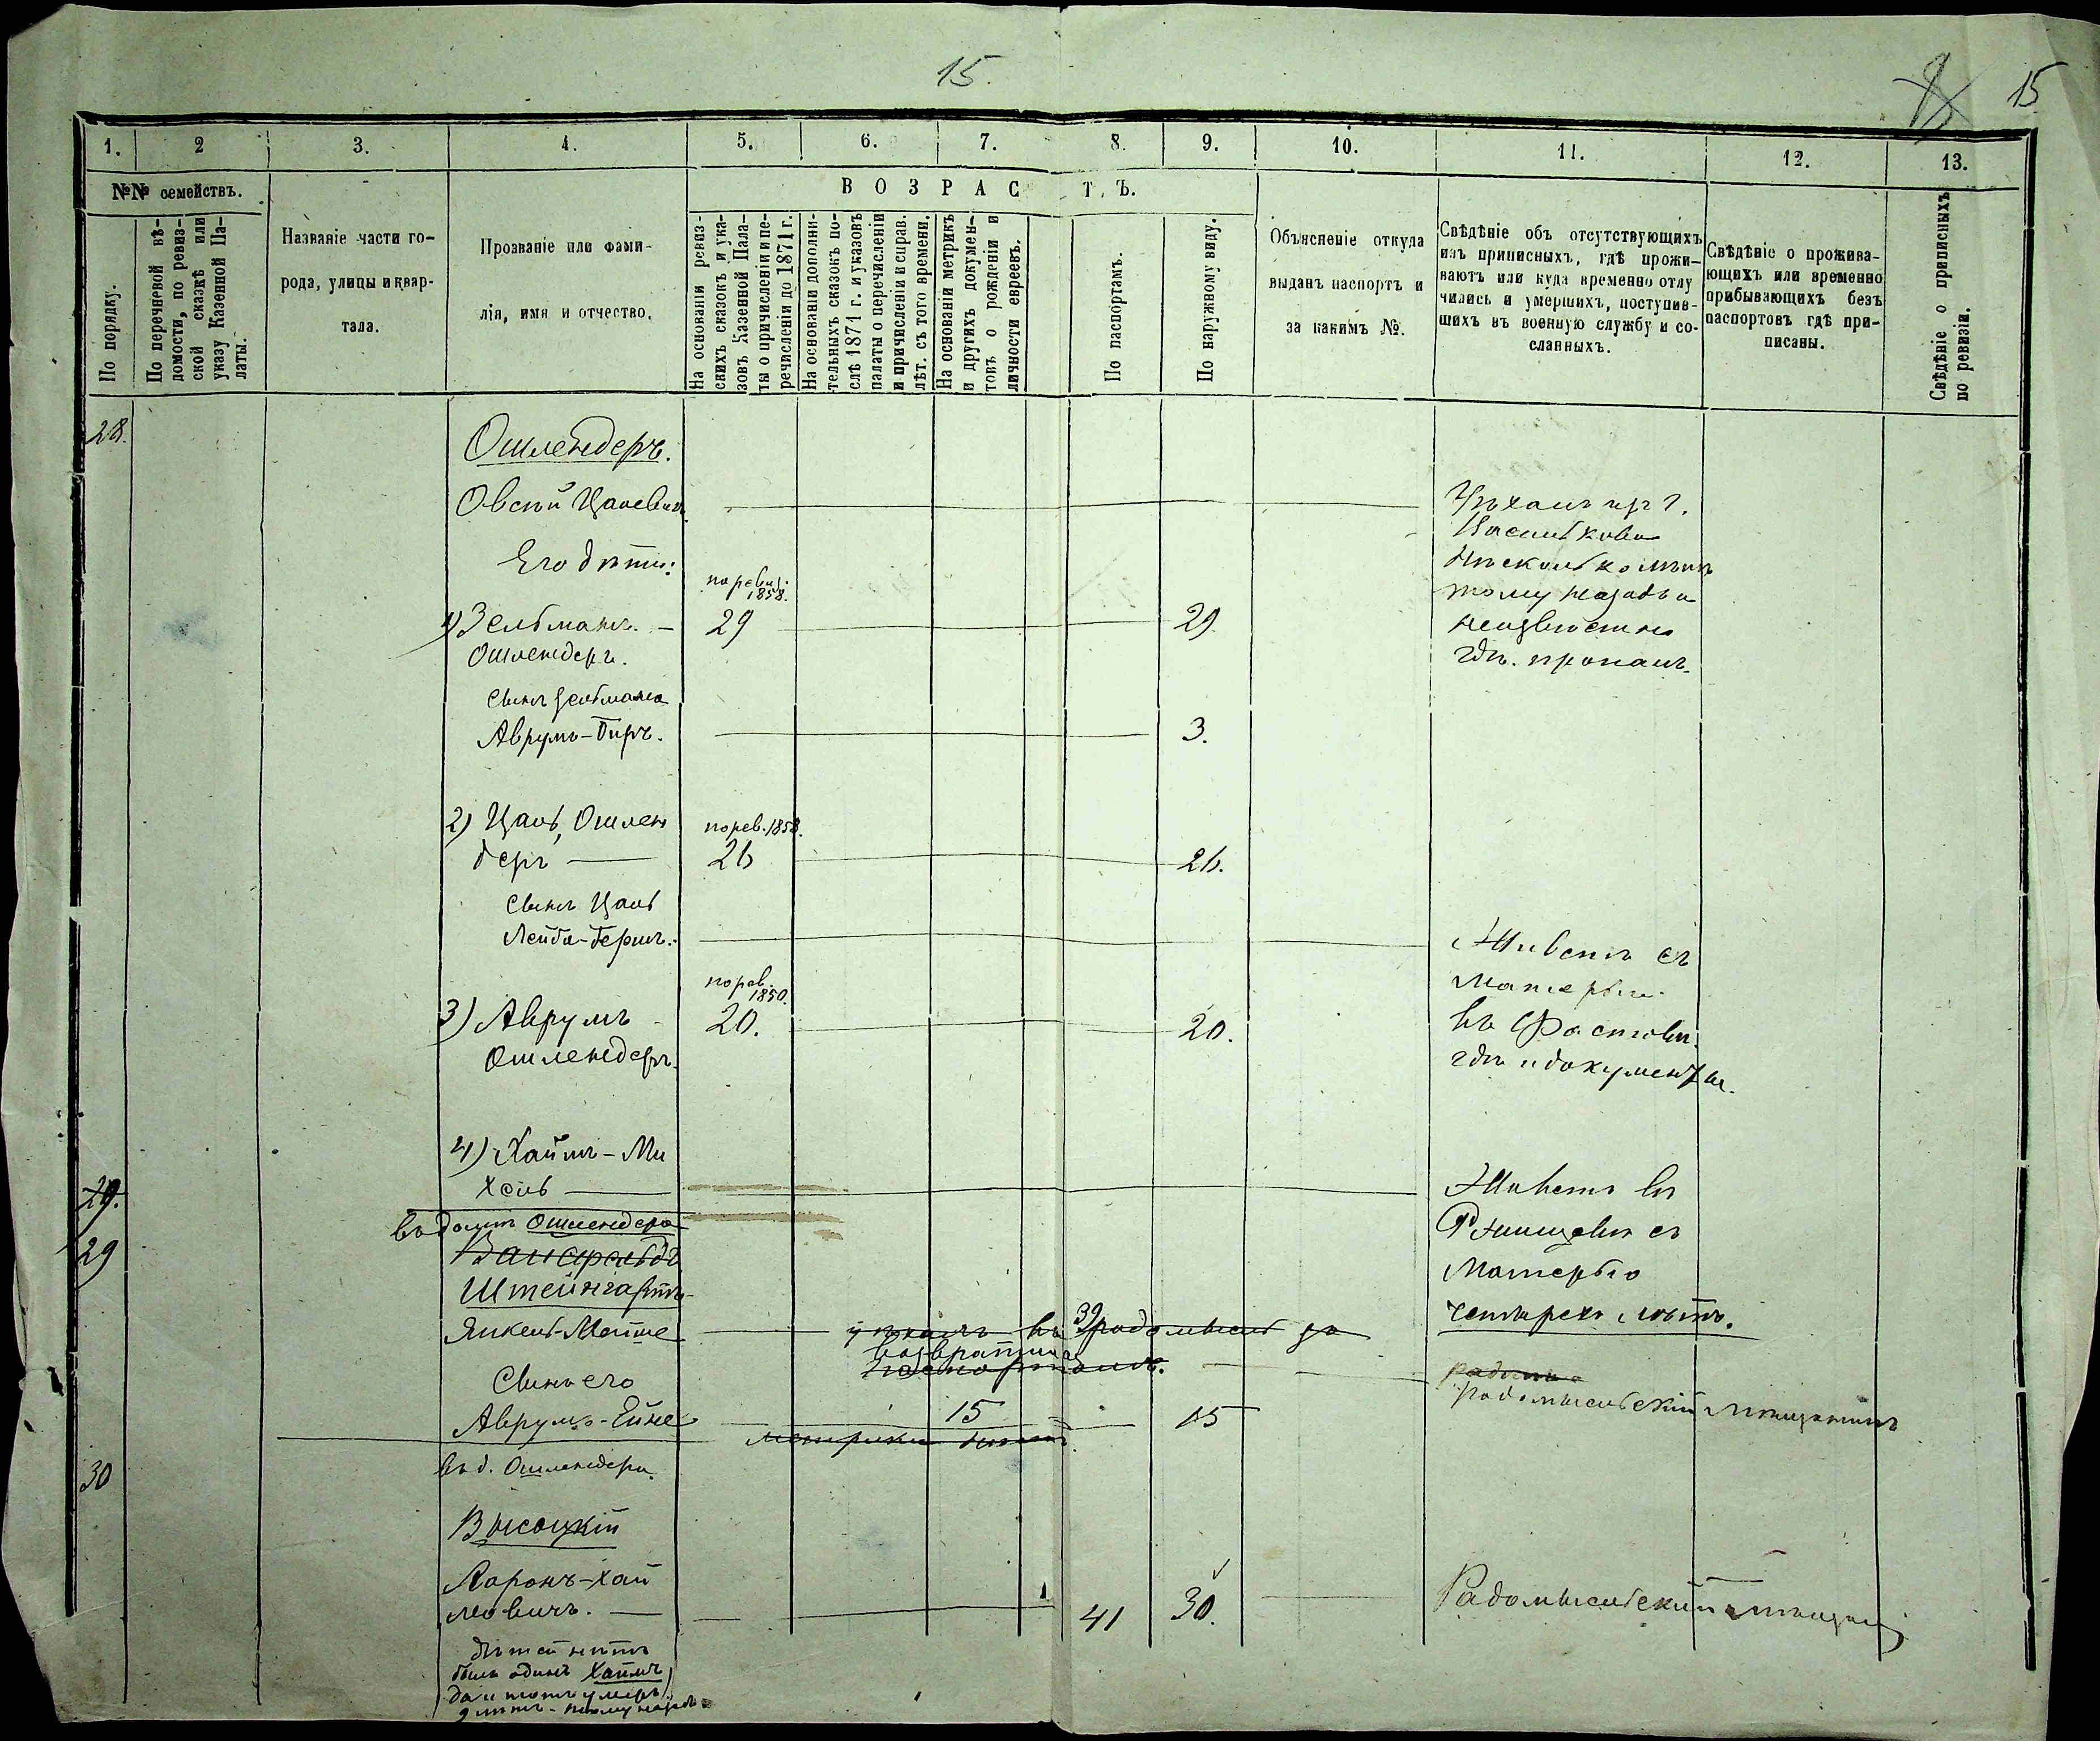 15.
15
1.
2
3.
4.
5.
6.
7.
8.
9.
10.
11.
12.
13.
№№ семействъ.
ВОЗРАСТЪ.
По порядку.
По перечневой вѣ-
домости, по ревиз-
ской сказкѣ или
указу Казенной Па-
латы.
Названіе части го-
рода, улицы и квар-
тала.
Прозваніе или фами-
лія, имя и отчество.
На основаніи ревиз-
скихъ сказокъ и ука-
зовъ Казенной Пала-
ты о причисленіи и пе-
речисленіи до 1871 г.
На основаніи дополни-
тельныхъ сказокъ по-
слѣ 1871 г. и указовъ
палаты о перечисленіи
и причисленіи и справ.
лѣт. съ того времени.
На основаніи метрикъ
и другихъ докумен-
товъ о рожденіи и
личности евреевъ.
По паспортамъ.
По наружному виду.
Объясненіе откуда
выданъ паспортъ и
за какимъ №.
Свѣдѣніе объ отсутствующихъ
изъ приписныхъ, гдѣ прожи-
ваютъ или куда временно отлу
чились и умершихъ, поступив-
шихъ въ военную службу и со-
сланныхъ.
Свѣдѣніе о прожива-
ющихъ или временно
прибывающихъ безъ
паспортовъ гдѣ при-
писаны.
Свѣдѣніе о приписныхъ
по ревизіи.
28.
Ошлендеръ.
Овсѣй Цалевич
Уѣхалъ изъ г.
Василькова
нѣсколько лѣтъ
тому назадъ и
неизвѣстно
гдѣ пропалъ.
Его дѣти:
по ревиз.
1858.
1) Зельманъ. –
29
29
Ошлендеръ.
Сынъ Зельмана
Аврумъ-Беръ.
3.
2) Цаль, Ошлен
по рев. 1858.
деръ
26
26.
Сынъ Цаля
Лейба-Гершъ.
Живетъ съ
матерью
въ Фастовѣ
гдѣ и документы.
по рев.
1850.
3) Аврумъ
20.
20.
Ошлендеръ.
4) Хаимъ-Ми
хель
Живетъ въ
Ржищевѣ съ
матерью
четырехъ лѣтъ.
29.
въ домѣ Ошлендера
29
Штейнгартъ
Янкель-Мошко
39
уѣхалъ въ Радомысль за
паспортомъ.
Сынъ его
Радомысльскій мѣщанинъ
Аврумъ-
15
15
метрики
30
въ д. Ошлендера.
Высоцкій
Ааронъ-Хай
мовичъ.
41
30.
Радомысльскій мѣщан
дѣтей нѣтъ
былъ одинъ Хаимъ
да и тотъ умеръ
9 лѣтъ тому назадъ